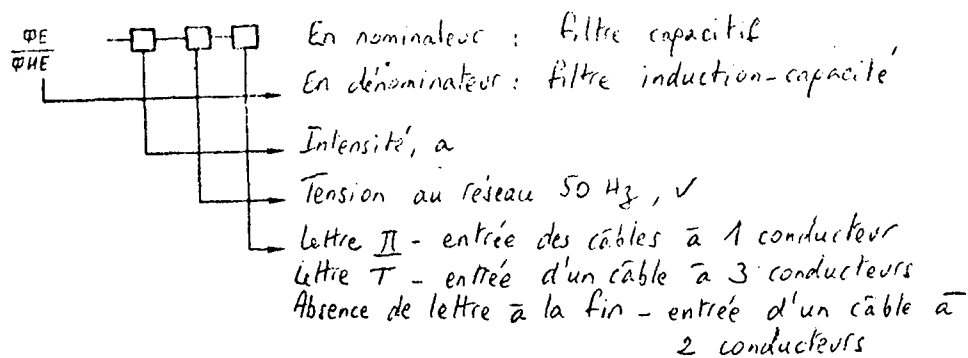 ФЕ
ФИЕ
En nominateur : filtre capacitif
En dénominateur : filtre induction-capacité
Intensité, a
Tension au réseau 50 Hz, v
Lettre П - entrée des câbles à 1 conducteur
Lettre T - entrée d'un câble à 3 conducteurs
Absence de lettre à la fin - entrée d'un câble à
2 conducteurs